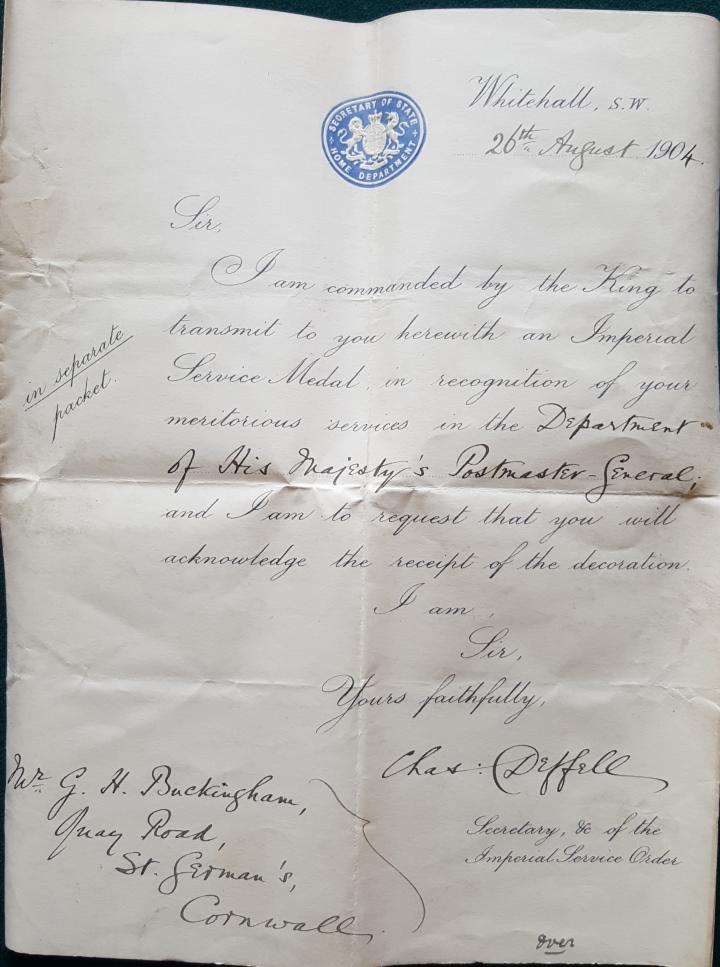 SECRETARY OF STATE
HOME DEPARTMENT
Whitehall, S.W.
26th August 1904.
Sir,
I am commanded by the King to
transmit to you herewith an Imperial
Service Medal, in recognition of your
meritorious services in the Department
of His Majesty's Postmaster-General;
and I am to request that you will
acknowledge the receipt of the decoration.
in separate
packet.
I am,
Sir,
Yours faithfully,
Chas: Deffell
Secretary, &c of the
Imperial Service Order
Mr G. H. Buckingham,
Quay Road,
St. German's,
Cornwall.
over